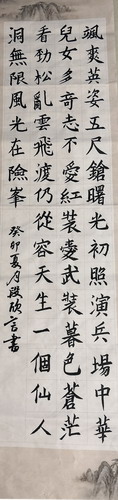 颯爽英姿五尺鎗曙光初照演兵場中華
兒女多奇志不愛紅裝愛武裝暮色蒼茫
看勁松亂雲飛渡仍從容天生一個仙人
洞無限風光在險峯
癸卯夏月段欣言書